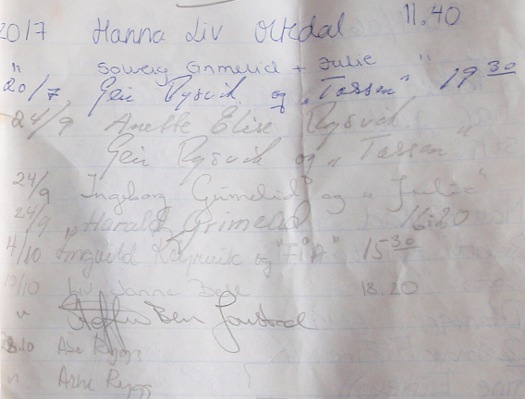 20/7 Hanna Liv Orkdal 11.40
" Solveig Grimelid + Julie "
20/7 Geir Rysvik og "Tassen" 19 30
24/9 Anette Elise Rysvik "
Geir Rysvik og "Tassen"
24/9 Ingeborg Grimelid og "Julie"
24/9 "Harald Grimelid 16:20
4/10 Ingvild og "FIA" 15 30
/10 Liv Janne 18.20
"
28.10 Åse Rygg
" Arne Rygg